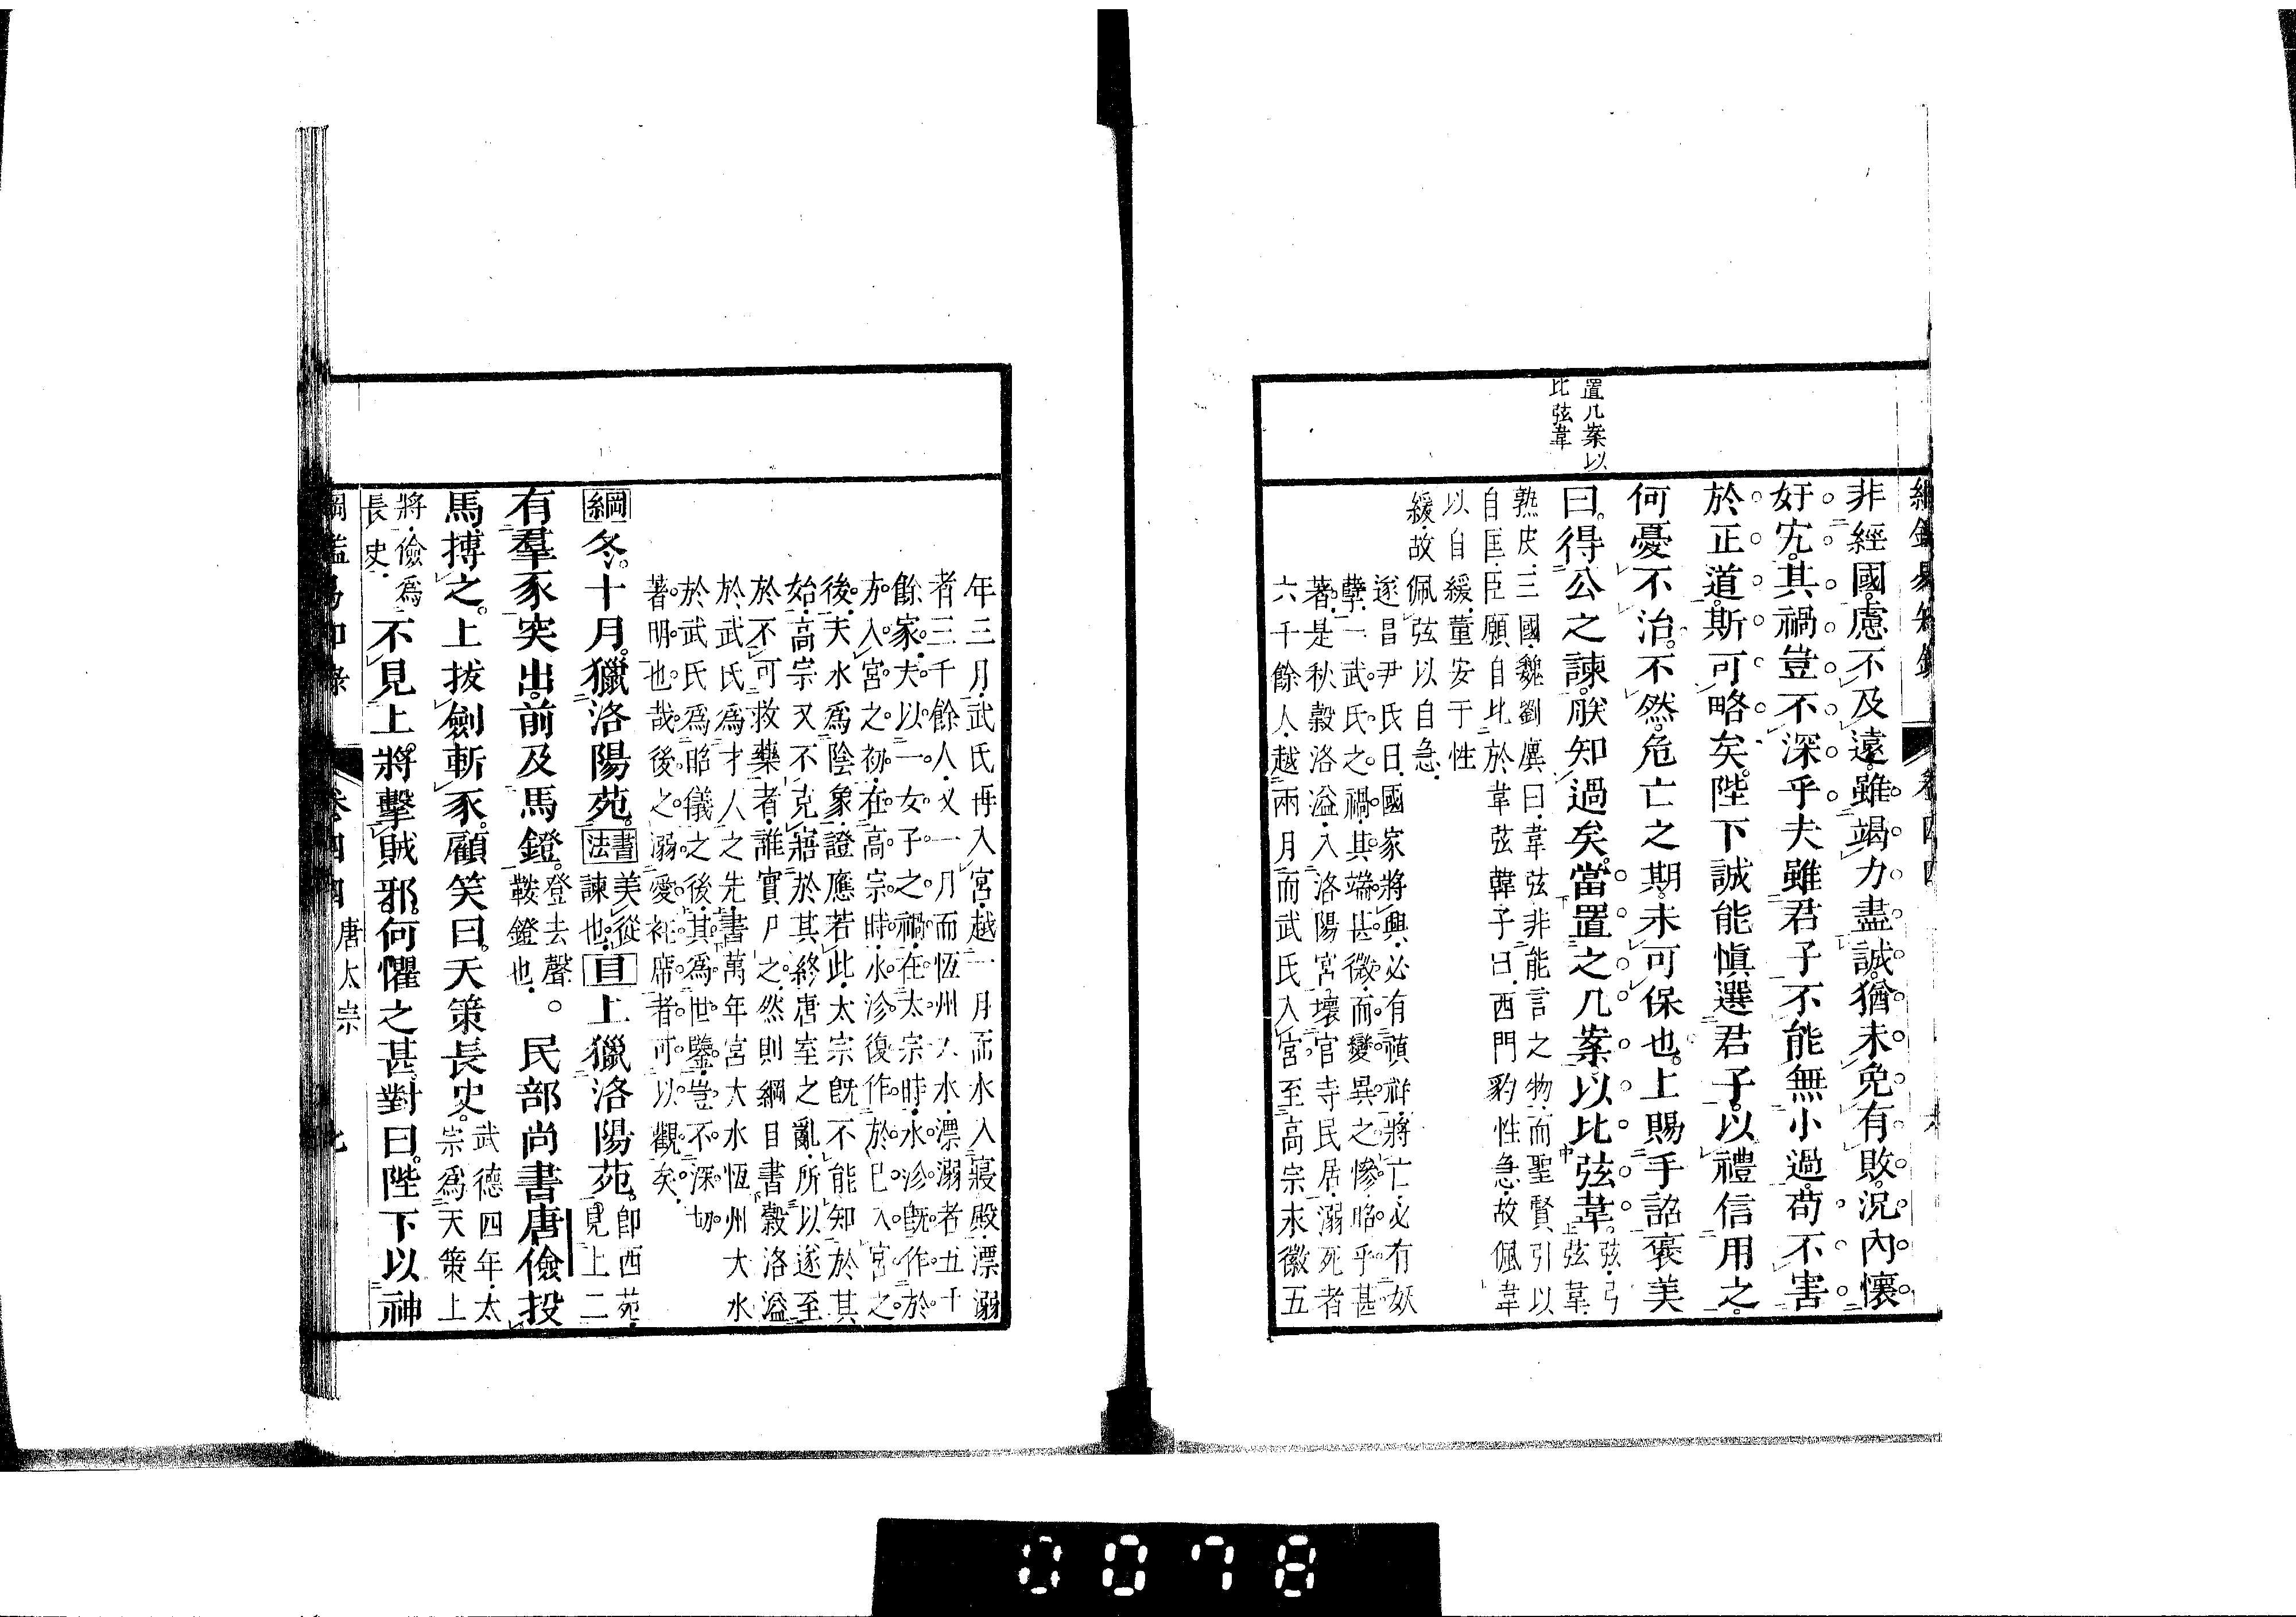 綱鑑易知錄 卷四四
置几案以
比弦韋
非經國慮不及遠雖竭力盡誠猶未免有敗況內懷
奸宄其禍豈不深乎夫雖君子不能無小過苟不害
於正道斯可略矣陛下誠能愼選君子以禮信用之
何憂不治不然危亡之期未可保也上賜手詔褒美
曰得公之諫朕知過矣當置之几案以比弦韋弦弓
弦韋
熟皮三國魏劉廙曰韋弦非能言之物而聖賢引以
自匡臣願自比於韋弦韓子曰西門豹性急故佩韋
以自緩董安于性
緩故佩弦以自急
遂昌尹氏曰國家將興必有禎祥將亡必有妖
孽一武氏之禍其端甚微而變異之慘昭乎甚
著是秋穀洛溢入洛陽宮壞官寺民居溺死者
六千餘人越兩月而武氏入宮至高宗永徽五
年三月武氏再入宮越一月而水入寢殿漂溺
者三千餘人又一月而恆州大水漂溺者五千
餘家夫以一女子之禍在太宗時水沴旣作於
方入宮之初在高宗時水沴復作於已入宮之
後天水爲陰象證應若此太宗旣不能知於其
始高宗又不克寤於其終唐室之亂所以遂至
於不可救藥者誰實尸之然則綱目書穀洛溢
於武氏爲才人之先書萬年宮大水恆州大水
於武氏爲昭儀之後其爲世鑒豈不深切
著明也哉後之溺愛衽席者可以觀矣
綱冬十月獵洛陽苑書法美從諫也目上獵洛陽苑卽西苑見上二
有羣豕突出前及馬鐙登去聲鞍鐙也民部尚書唐儉投
馬搏之上拔劍斬豕顧笑曰天策長史武德四年太宗爲天策上
將儉爲長史不見上將擊賊邪何懼之甚對曰陛下以神
綱鑑易知錄 卷四四 唐太宗 七
0078